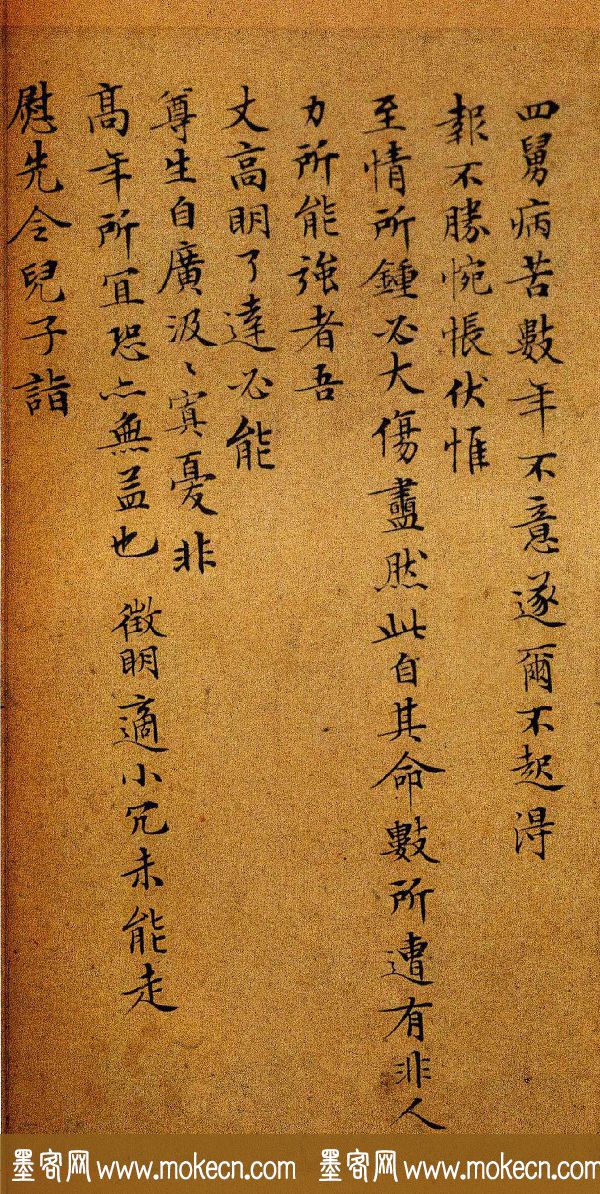 四舅病苦數年不意遂爾不起得
報不勝惋悵伏惟
至情所鍾必大傷盡然此自其命數所遭有非人
力所能強者吾
丈高明了達必能
尊生自廣汲〻寘憂非
高年所冝恐亦無益也 徵明適小冗未能走
慰先令兒子詣
墨客网 www.mokecn.com 墨客网 www.mokecn.com